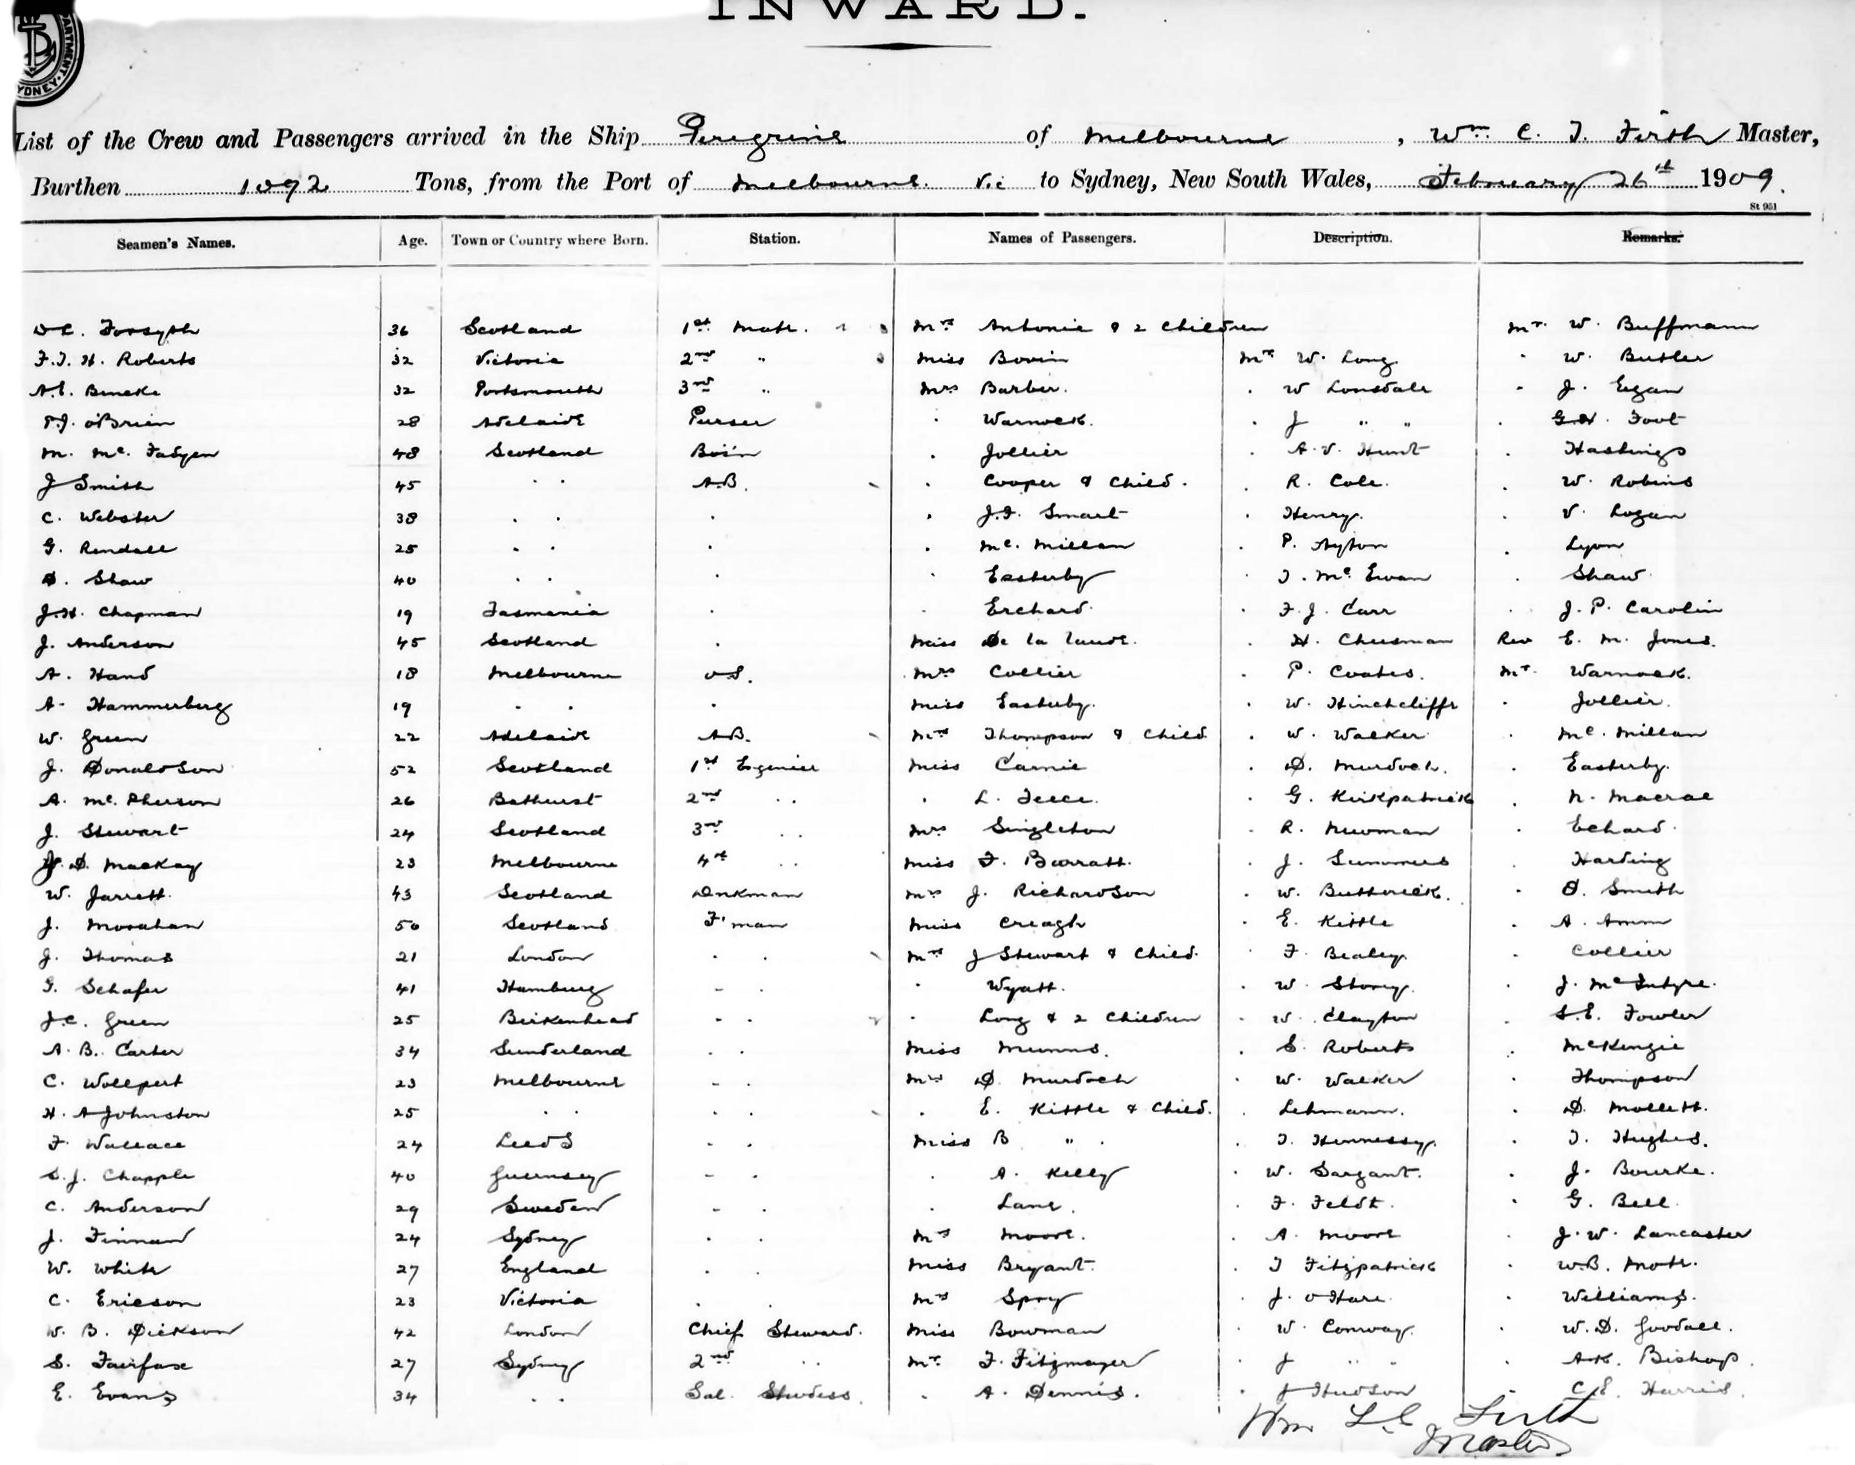 INWARD.
List of the Crew and Passengers arrived in the Ship Peregrine of Melbourne, Wm. C. T. Firth Master,
Burthen 1092 Tons, from the Port of Melbourne. Vic to Sydney, New South Wales, February 26th 1909.
St 951
Seamen's Names. Age. Town or Country where Born. Station. Names of Passengers. Description. Remarks.
Forsyth 36 Scotland 1st Mate. Mrs Antonie & 2 Children Mr. W. Buffmann
F.T. H. Roberts 32 Victoria 2nd " Miss Bovin Mr W. Long " W. Butler
A.E. 32 Portsmouth 3rd " Mrs Barber. " W Lonsdale " J. Egan
O'Brien 28 Adelaide Purser " Warnock. " J " " " G.H. Foot
M. Mc. Fadyen 48 Scotland Bos'n " Jollier " A.V. Hunt " Hastings
J Smith 45 " " A.B. " Cooper & Child. " R. Cole. " W. Robins
C. Webster 38 " " " " J.F. Smart " Henry. " V. Logan
G. Rendall 25 " " " " Mc. Millan " P. Ayton " Lyon
D. Shaw 40 " " " " Easterby " T. Mc Ewan " Shaw
J.H. Chapman 19 Tasmania " " Erchard. " F. J. Carr " J. P. Carolin
J. Anderson 45 Scotland " Miss De la Lande. " H. Cheesman Rev E. M. Jones.
A. Hand 18 Melbourne O.S. Mrs Collier " P. Coates. Mr. Warnock.
A. Hammerberg 19 " " " Miss Easterby. " W. Hinchcliffe " Jollier.
W. Green 22 Adelaide A.B. Mrs Thompson & Child " W. Walker " Mc. Millan
J. Donaldson 52 Scotland 1st Engenier Miss Carnie " D. Murdoch. " Easterby.
A. Mc. Pherson 26 Bathurst 2nd " " " L. Teece. " G. Kirkpatrick " N. Macrae
J. Stewart 24 Scotland 3rd " " Mrs Singleton " R. Newman " Echard.
J. D. Mackay 23 Melbourne 4th " " Miss F. Barratt. " J. Summers " Harding
W. Jarrett. 43 Scotland Dnkman Mrs J. Richardson " W. Butterick. " D. Smith
J. Monahan 50 Scotland F'man Miss Creagh " E. Kittle " A. Amm
J. Thomas 21 London " " Mrs J Stewart & Child. " F. Bealey. " Collier
G. Schafer 41 Hamburg " " " Wyatt. " W. Storey. " J. McIntyre.
J.C. Green 25 Birkenhead " " " Long & 2 Children " W. Clayton " S.E. Fowler
A. B. Carter 34 Sunderland " " Miss Munns. " S. Roberts " McKenzie
C. Wollpert 23 Melbourne " " Mrs D. Murdoch " W. Walker " Thompson
H. A Johnston 25 " " " " " E. Kittle & Child. " Lehmann. " D. Mollett.
F. Wallace 24 Leeds " " Miss B " " T. Hennessy. " T. Hughes.
S.J. Chapple 40 Guernsey " " " A. Kelly " W. Sargant. " J. Bourke.
C. Anderson 29 Sweden " " " Lane. " F. Feldt. " G. Bell
J. Finnan 24 Sydney " " Mrs Moore. " A. Moore " J. W. Lancaster
W. White 27 England " " Miss Bryant. " T Fitzpatrick " W.B. Mote.
C. Ericson 23 Victoria " " Mrs Spry " J. O'Hare " Williams.
W. B. Dickson 42 London Chief Steward. Miss Bowman " W. Conway. " W. D. Goodall.
S. Fairfax 27 Sydney 2nd " " Mr. F. Fitzmayer " J " " " A.K. Bishop.
E. Evans 34 " " Sal. Stwdess. " A. Dennis. " J Hudson " C.E. Harris.
Wm C Firth
Master